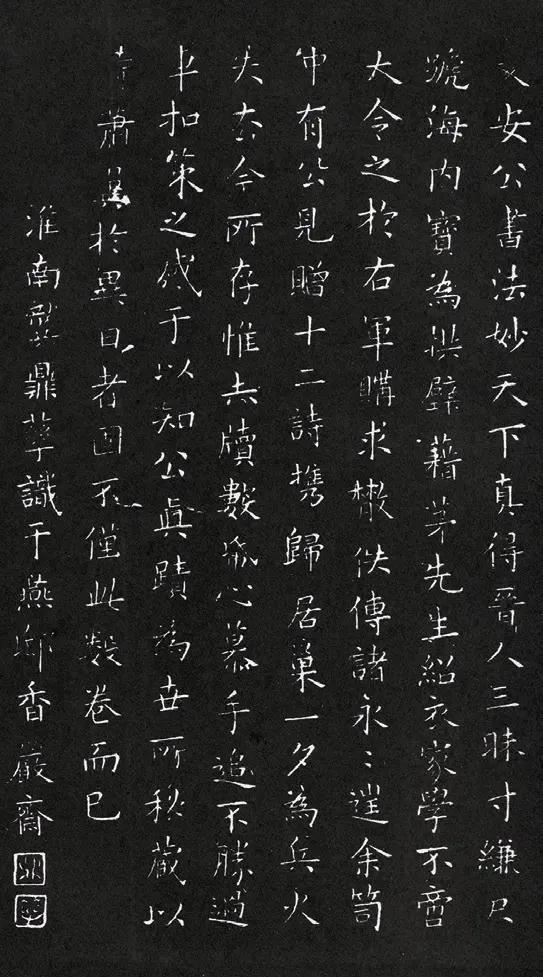 文安公書法妙天下真得晉人三昧寸縑尺
蹏海內寶為拱璧藉茅先生紹衣家學不啻
大令之於右軍購求散佚傳諸永〻余笥
中有公見贈十二詩攜歸居巢一夕為兵火
失去今所存惟赤牘數紙心慕手追不勝過
車扣策之感于以知公真蹟為世所秘藏以
蕭翼於異日者固不僅此數卷而已
淮南龔鼎孳識于燕邸香嚴齋
鼎
孳